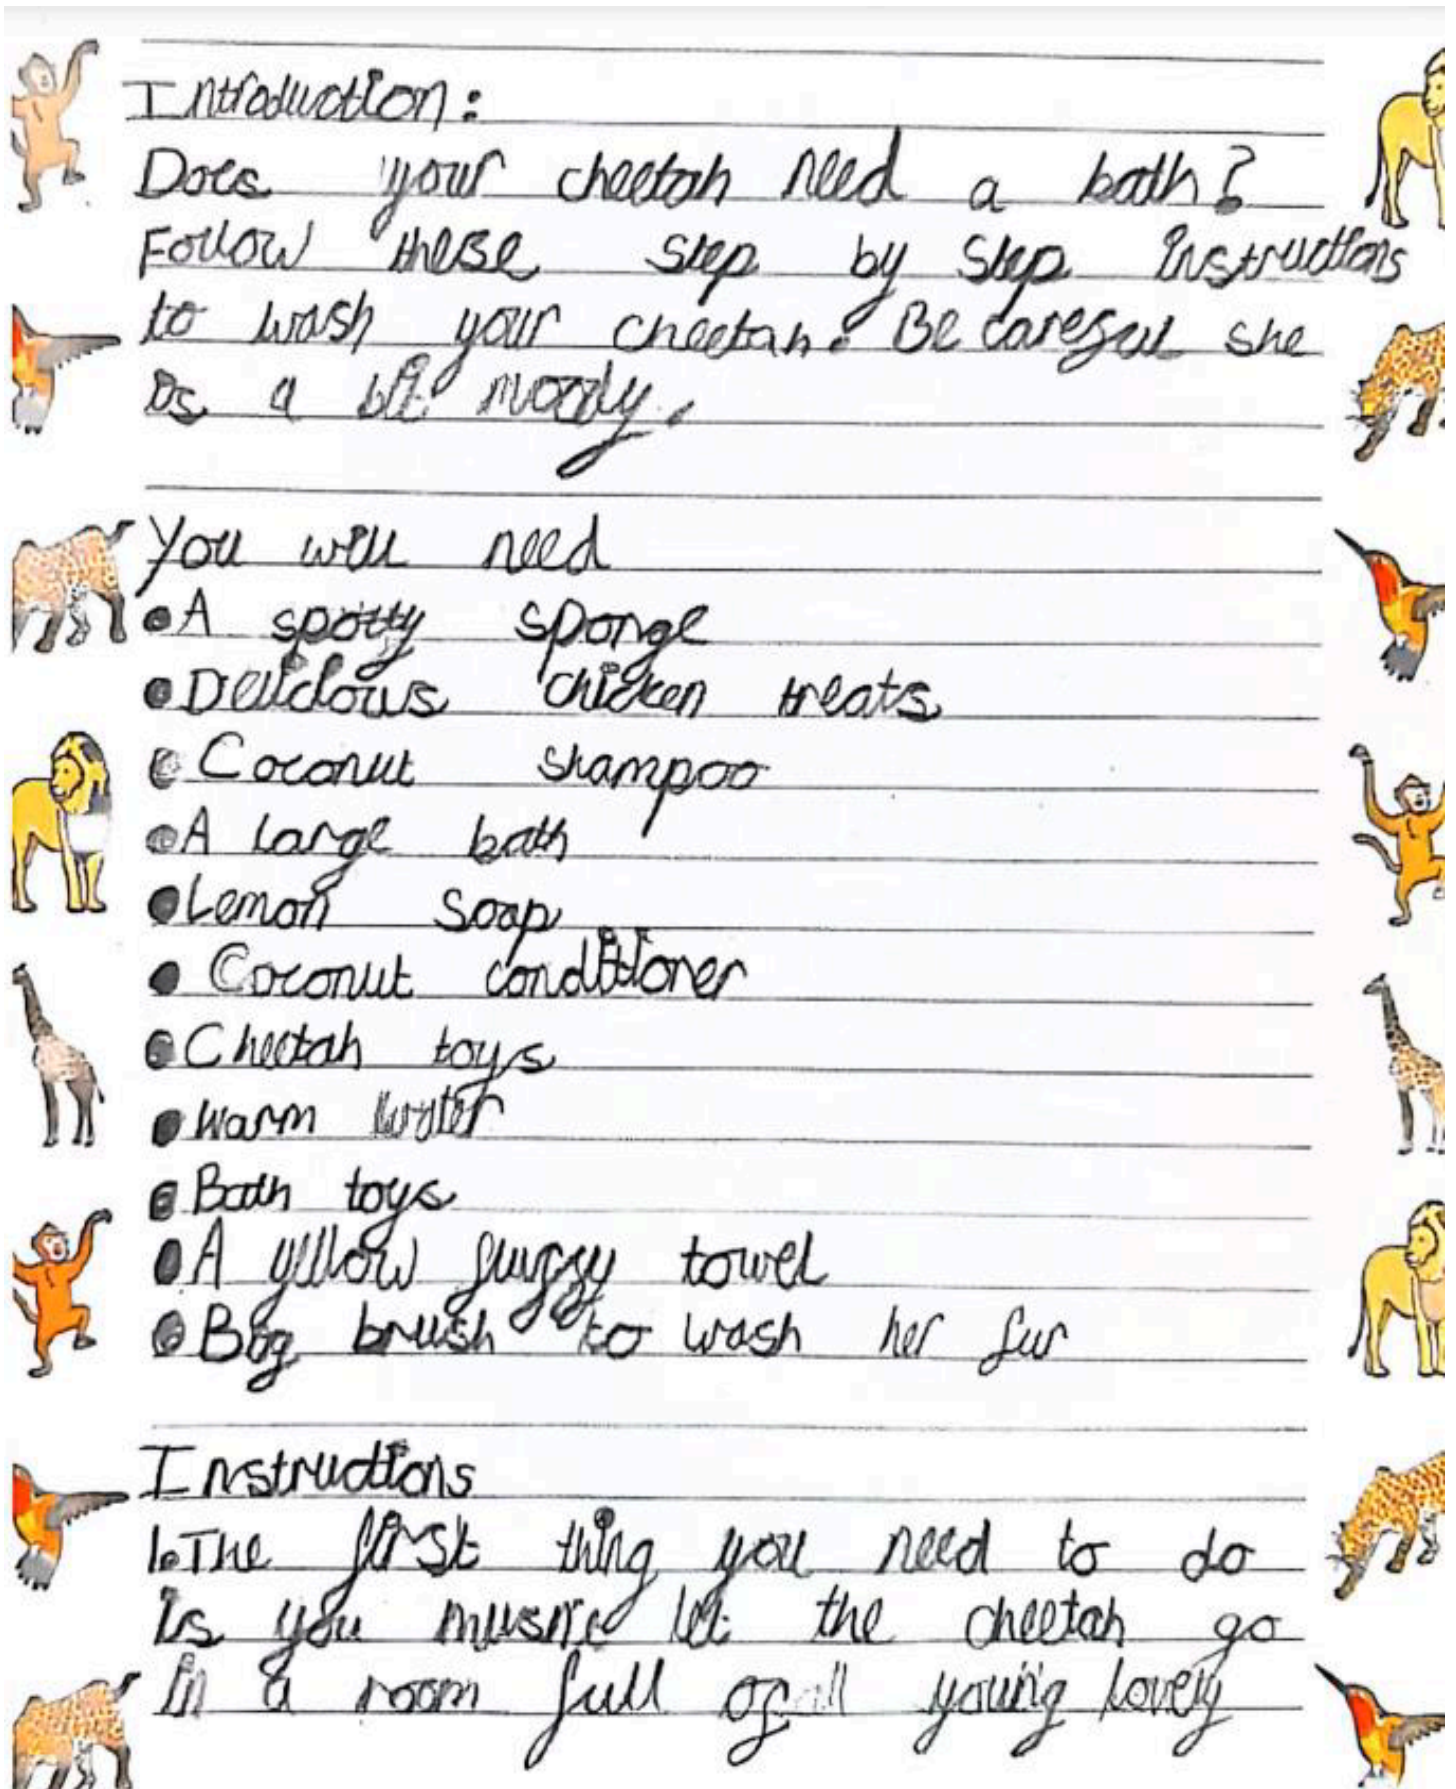 Introduction:
Does your cheetah need a bath?
Follow these step by step instructions
to wash your cheetah. Be careful she
is a bit moody.
You will need
•A spotty sponge
•Delicious chicken treats
• Coconut shampoo
•A large bath
•Lemon Soap
• Coconut conditioner
•Cheetah toys
•Warm water
•Bath toys
•A yellow fluffy towel
•Big brush to wash her fur
Instructions
1.The first thing you need to do
is you musn't let the cheetah go
in a room full of all young lovely